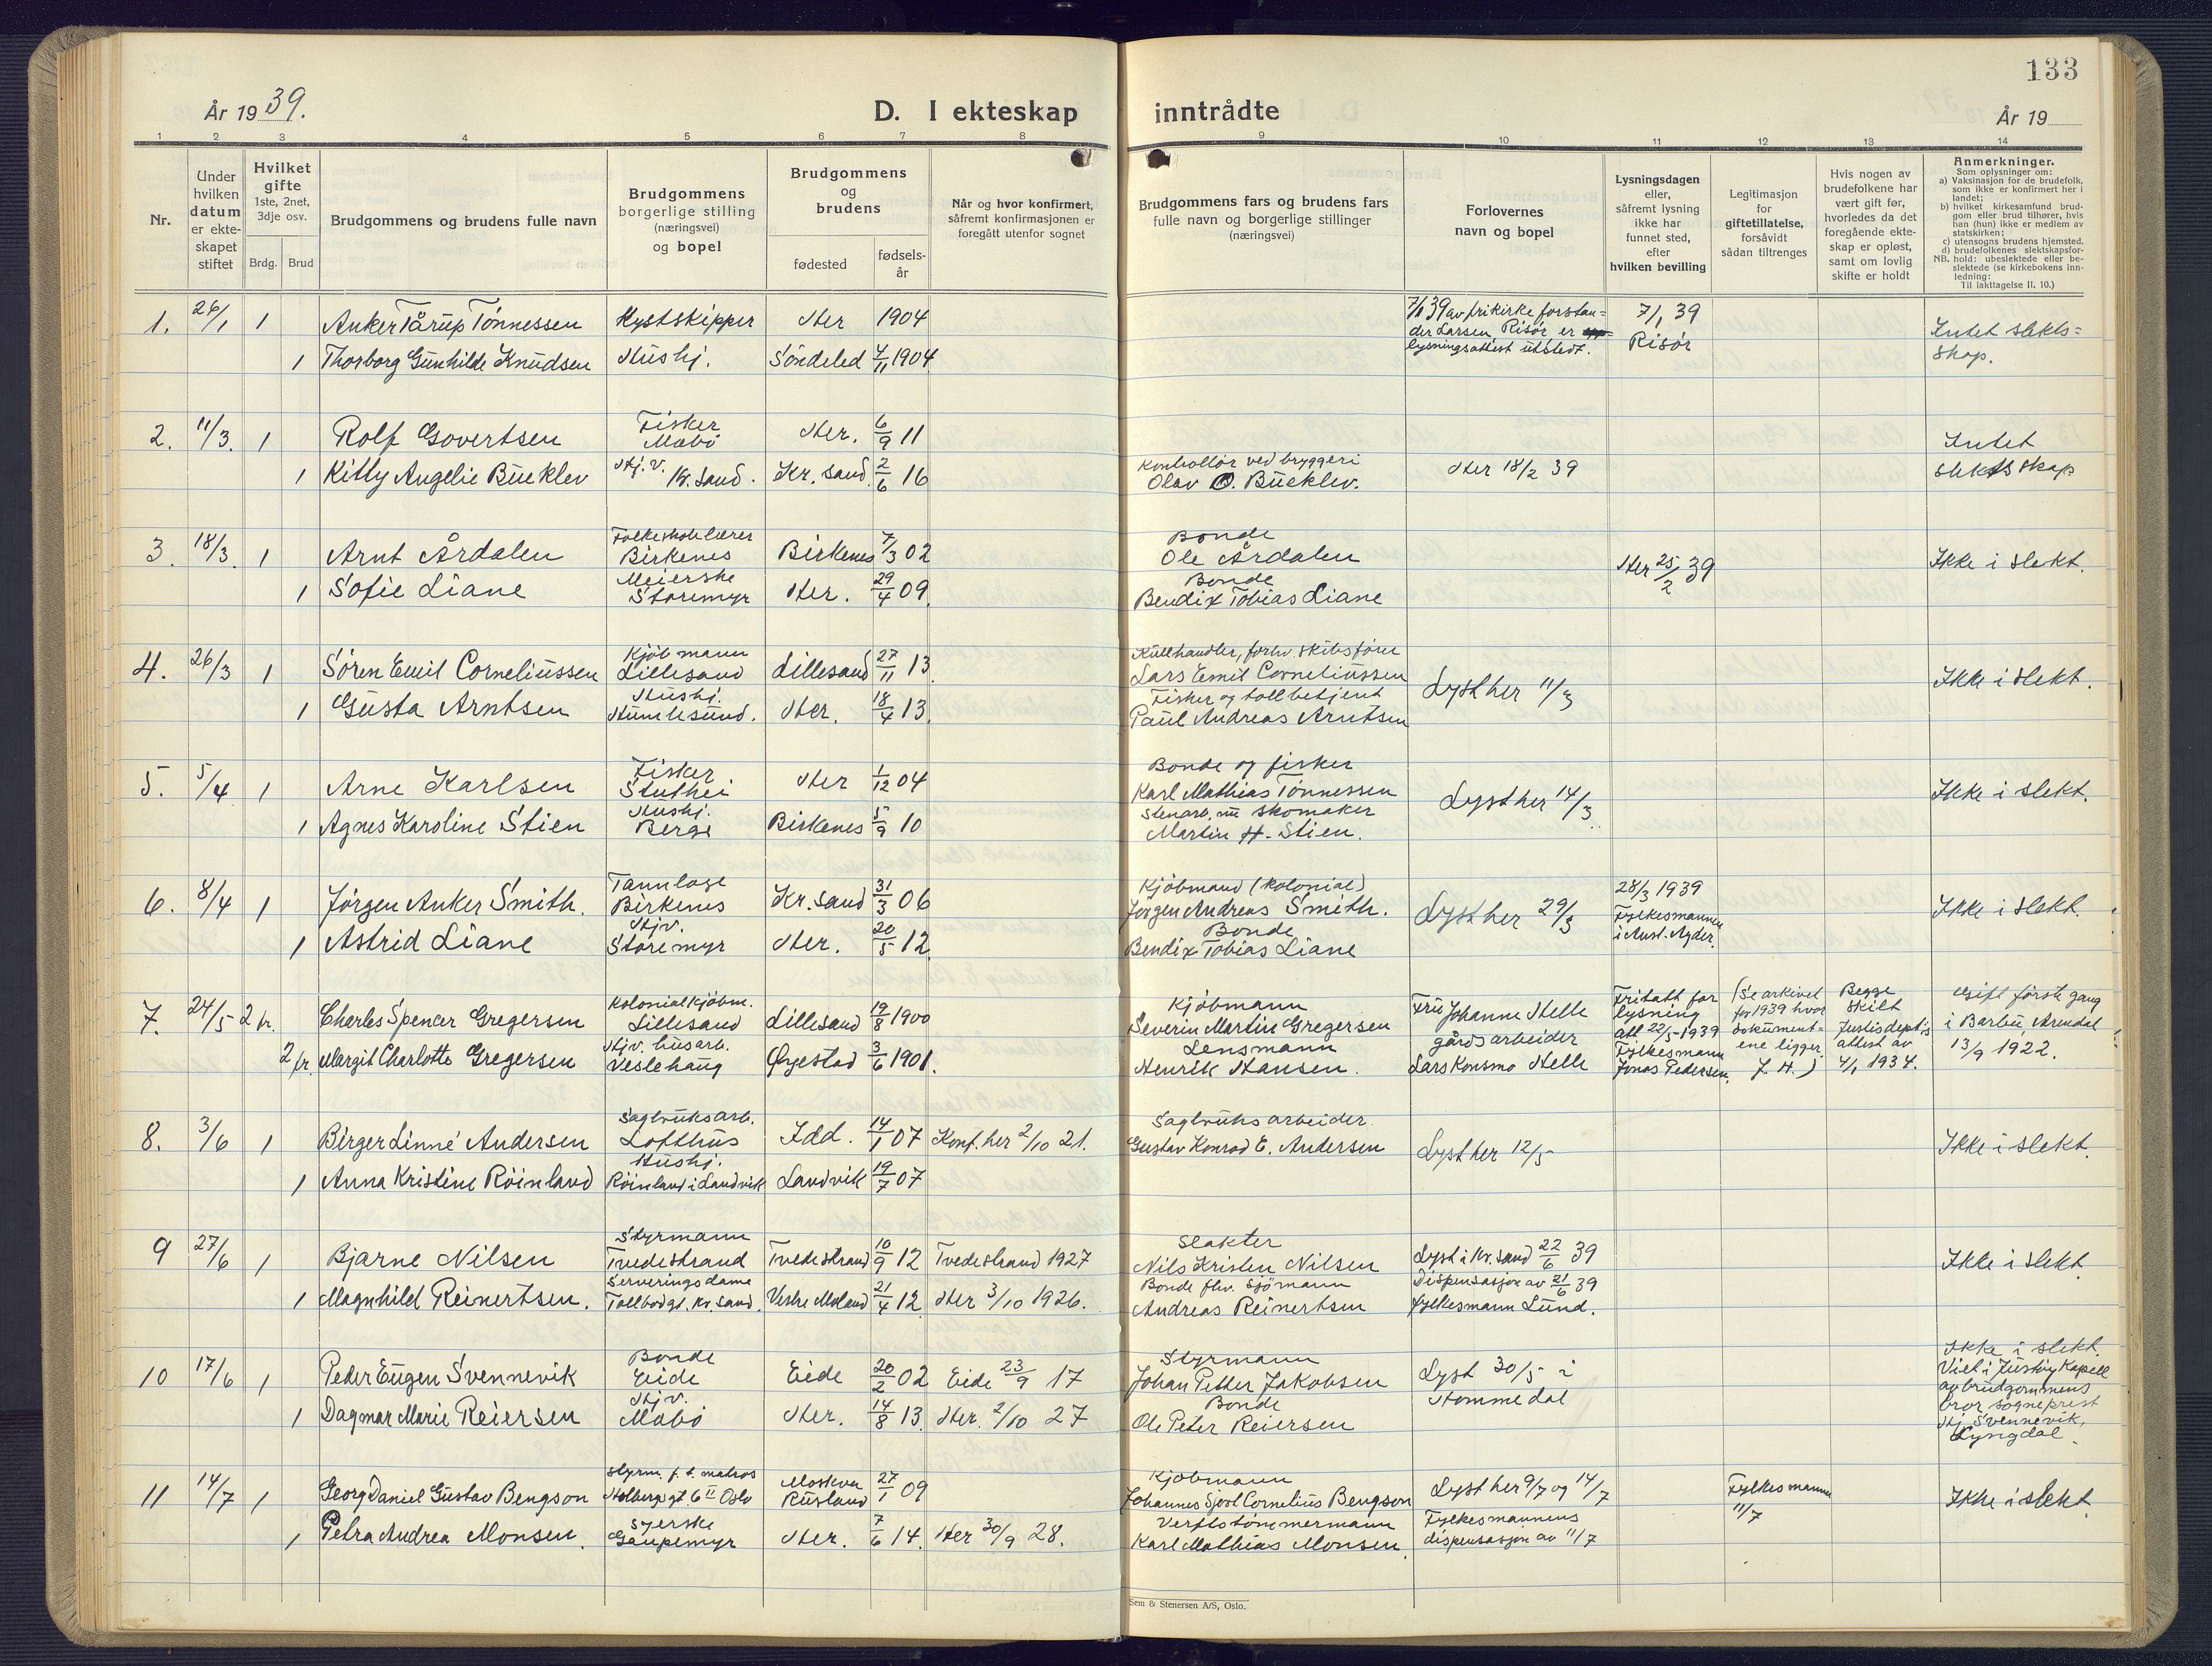 133
År 19 39.
D. I ekteskap inntrådte
År 19
1 2 3 4 5 6 7 8 9 10 11 12 13 14
Nr.
Under
hvilken
datum
er ekte-
skapet
stiftet
Hvilket
gifte
1ste, 2net,
3dje osv.
Brdg. Brud
Brudgommens og brudens fulle navn
Brudgommens
borgerlige stilling
(næringsvei)
og bopel
Brudgommens
og
brudens
fødested
fødsels-
år
Når og hvor konfirmert,
såfremt konfirmasjonen er
foregått utenfor sognet
Brudgommens fars og brudens fars
fulle navn og borgerlige stillinger
(næringsvei)
Forlovernes
navn og bopel
Lysningsdagen
eller,
såfremt lysning
ikke har
funnet sted,
efter
hvilken bevilling
Legitimasjon
for
giftetillatelse,
forsåvidt
sådan tiltrenges
Hvis nogen av
brudefolkene har
vært gift før,
hvorledes da det
foregående ekte-
skap er opløst,
samt om lovlig
skifte er holdt
Anmerkninger.
Som oplysninger om:
a) Vaksinasjon for de brudefolk,
som ikke er konfirmert her i
landet;
b) hvilket kirkesamfund brud-
gom eller brud tilhører, hvis
han (hun) ikke er medlem av
statskirken;
c) utensogns brudens hjemsted.
d) brudefolkenes slektskapsfor-
NB. hold: ubeslektede eller be-
slektede (se kirkebokens inn-
ledning:
Til iakttagelse II. 10.)
1. 26/1 1 Anker Tårup Tønnessen Kystskipper Her 1904
7/1 39 av frikirke forstan=
der Larsen Risör er
lysningsattest utstedt.
7/1 39
Risör
Intet slekts=
skap.
1 Thorborg Gunhilde Knudsen Hushj. Söndeled 4/11 1904
2. 11/3 1 Rolf Govertsen Fisker
Mæbö Her. 6/9 11
1 Kitty Angelie Bueklev Hj. v. Kr. sand. Kr. sand. 2/6 16
Kontrollör ved bryggeri
Olav O. Bueklev.
Her 18/2 39
Intet
slektsskap
3. 18/3 1 Arnt Årdalen Folkeskolelærer
Birkenes Birkenes 7/3 02
Bonde
Ole Årdalen
Her 25/2 39
Ikke i slekt.
1 Sofie Liane Meierske
Storemyr Her. 29/4 09
Bonde
Bendix Tobias Liane
4. 26/3 1 Sören Emil Corneliussen Kjöbmann
Lillesand Lillesand 27/11 13
Kullhandler, forhv. skibsförer
Lars Emil Corneliussen
Lyst her 11/3
Ikke i slekt.
1 Gusta Arntsen Hushj.
Humlesund. Her. 18/4 13
Fisker og tollbetjent
Paul Andreas Arntsen
5. 5/4 1 Arne Karlsen Fisker
Stuthei Her 1/12 04
Bonde og fisker
Karl Mathias Tönnessen
Lyst her 14/3
Ikke i slekt.
1 Agnes Karoline Stien Hushj.
Berge Birkenes 5/9 10
Stenarb. nu skomaker
Martin H. Stien.
6. 8/4 1 Jörgen Anker Smith. Tannlæge
Birkenes Kr. sand 31/3 06
Kjöbmand (kolonial)
Jörgen Andreas Smith.
Lyst her 29/3
28/3 1939
Fylkesmannen
i Aust. Agder.
Ikke i slekt.
1 Astrid Liane Hjv.
Storemyr Her. 20/5 12
Bonde
Bendix Tobias Liane
7. 24/5 2 fr. Charles Spencer Gregersen Kolonialkjöbm.
Lillesand Lillesand 19/8 1900
Kjöbmann
Severin Martin Gregersen
Fru Johanne Helle
gårdsarbeider
Lars Konsmo Helle
Fritatt for
lysning
att. 22/5 - 1939
Fylkesmann
Jonas Pedersen.
(Se arkivet
for 1939 hvor
dokument=
ene ligger.
J. H.)
Begge
skilt
Justisdept.s
attest av
4/1 1934.
Gift förste gang
i Barbu, Arendal
13/9 1922.
2 fr. Margit Charlotte Gregersen Hjv. husarb.
Veslehaug Øyestad 3/6 1901.
Lensmann
Henrik Hansen.
8. 3/6 1 Birger Linné Andersen Sagbruksarb.
Lofthus Idd. 14/1 07 Konf. her 2/10 21.
Sagbruksarbeider.
Gustav Konrad E. Andersen
Lyst her 12/5
Ikke i slekt.
1 Anna Kristine Röinland Hushj.
Röinland i Landvik Landvik 19/7 07
9 27/6 1 Bjarne Nilsen Styrmann
Tvedestrand Tvedestrand 10/9 12 Tvedestrand 1927
Slakter
Nils Kristen Nilsen
Lyst i Kr. sand 22/6 39
Dispensasjon av 21/6 39
fylkesmann Lund.
Ikke i slekt.
1 Magnhild Reinertsen. Serveringsdame
Tollbodgt. Kr. sand. Vestre Moland 21/4 12 Her 3/10 1926.
Bonde fhv. sjömann
Andreas Reinertsen
10 17/6 1 Peder Eugen Svennevik Bonde
Eide Eide 20/2 02 Eide 23/9 17
Styrmann
Johan Petter Jakobsen
Lyst 30/5 i
Hommedal
Ikke i slekt.
Viet i Justvig Kapell
av brudgommens
bror sogneprest
Hj. Svennevik,
Lyngdal.
1 Dagmar Marie Reiersen Hjv.
Mæbö Her. 14/8 13. Her. 2/10 27
Bonde
Ole Peter Reiersen
11 14/7 1 Georg Daniel Gustav Bengson Styrm. f. t. matros
Holbergs gt. 6 II Oslo Moskva
Rusland 27/1 09
Kjöbmann
Johannes Cornelius Bengson
Lyst her 9/7 og 14/7
Fylkesmannens
dispensasjon av 11/7
Fylkesmannen
11/7
Ikke i slekt.
1 Petra Andrea Monsen. Syerske
Gaupemyr Her. 7/6 14. Her 30/9 28.
Verftstömmermann
Karl Mathias Monsen.
Sem & Stenersen A/S, Oslo.